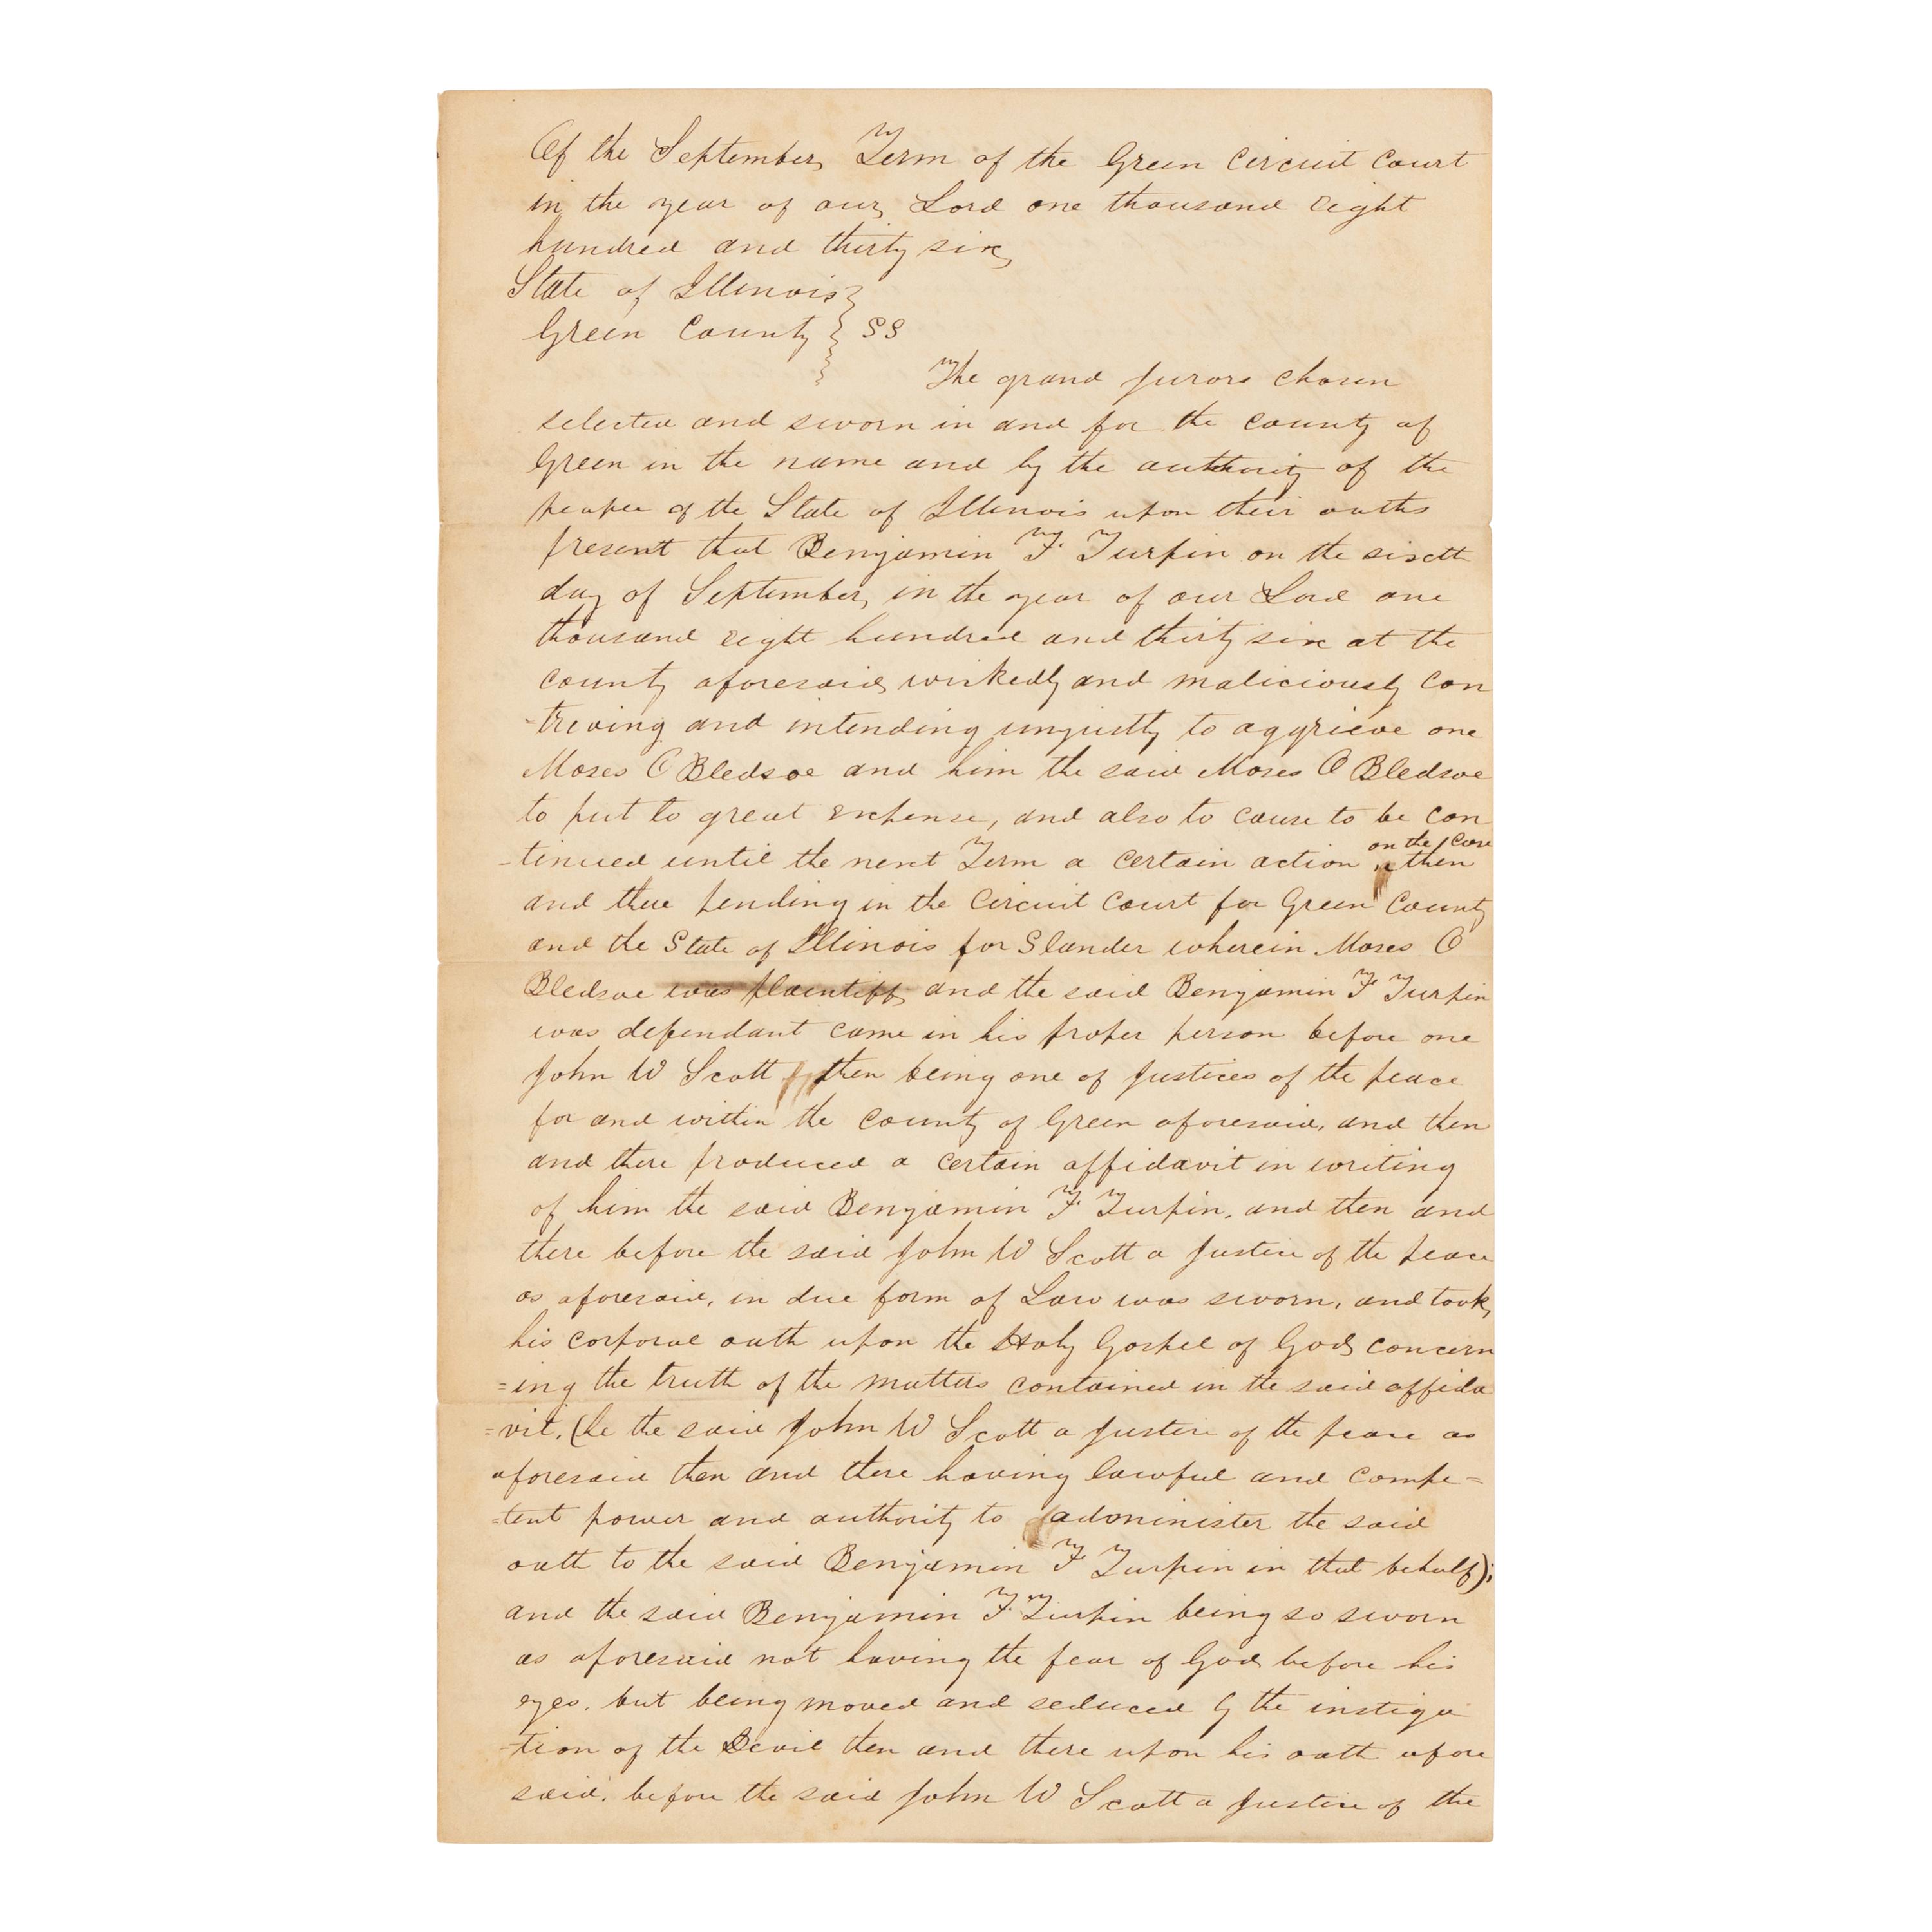 Of the September Term of the Green Circuit Court
in the year of our Lord one thousand eight
hundred and thirty six
State of Illinois
Green County } SS
The grand jurors chosen
selected and sworn in and for the county of
Green in the name and by the authority of the
people of the State of Illinois upon their oaths
present that Benjamin F. Turpin on the sixth
day of September, in the year of our Lord one
thousand eight hundred and thirty six at the
county aforesaid, wickedly and maliciously con
-triving and intending unjustly to aggrieve one
Moses O Bledsoe and him the said Moses O Bledsoe
to put to great expense, and also to cause to be con
-tinued until the next Term a certain action on the case then
and there pending in the Circuit Court for Green County
and the State of Illinois for Slander wherein Moses O
Bledsoe was plaintiff, and the said Benjamin F Turpin
was defendant came in his proper person before one
John W Scott then being one of Justices of the peace
for and within the County of Green aforesaid, and then
and there produced a certain affidavit in writing
of him the said Benjamin F. Turpin, and then and
there before the said John W Scott a Justice of the peace
as aforesaid, in due form of Law was sworn, and took,
his corporal oath upon the Holy Gospel of God, concern
=ing the truth of the matters contained in the said affida
=vit, (he the said John W Scott a Justice of the peace as
aforesaid then and there having lawful and compe=
=tent power and authority to administer the said
oath to the said Benjamin F Turpin in that behalf);
and the said Benjamin F. Turpin being so sworn
as aforesaid not having the fear of God before his
eyes, but being moved and seduced by the instiga
-tion of the Devil then and there upon his oath afore
said, before the said John W Scott a Justice of the